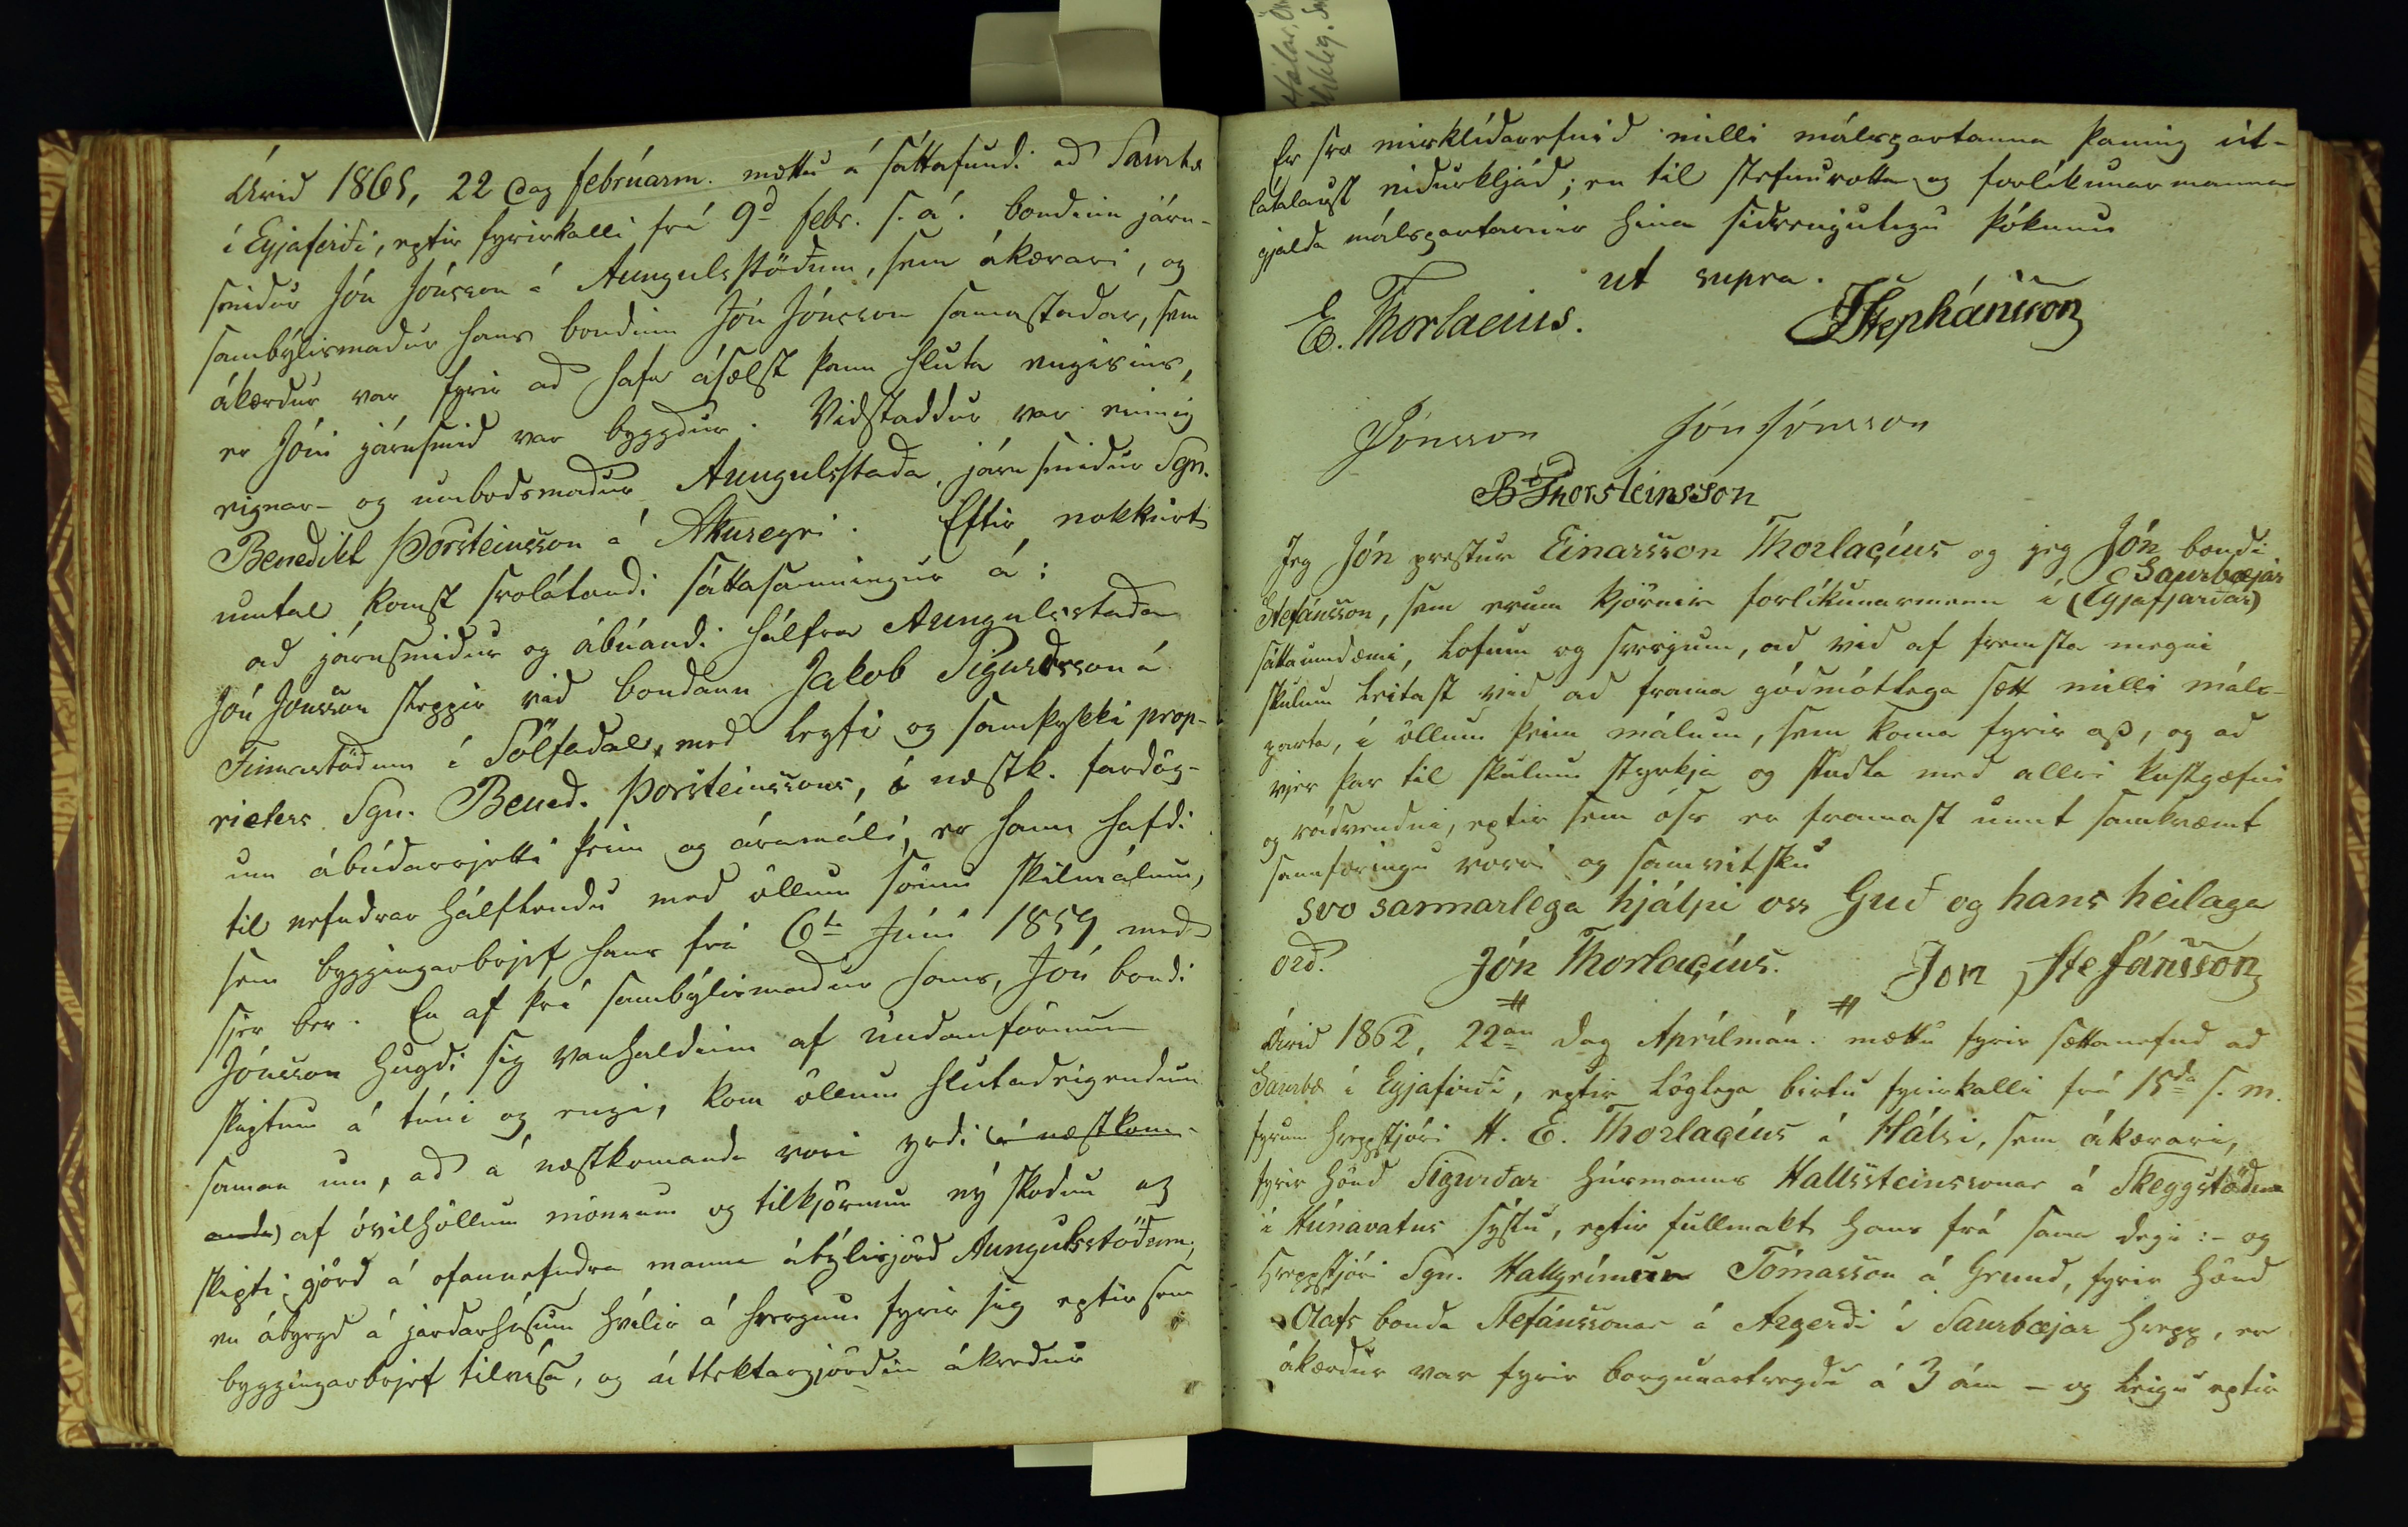 Árið 1861, 22 dag febrúarm. mættu á sáttafundi að Saurbæ
í Eyjafirði, eptir fyrirkalli frá 9d febr. s. á. bondinn járn-
smiður Jón Jónsson á Aungulsstöðum, sem ákærari, og
sambýlismaður hans bondinn Jón Jónsson samastaðar, sem
ákærður var fyrir að hafa ásælst þann hluta engisins,
er Jóni járnsmið var byggður. Viðstaddur var einnig
eignar- og umboðsmaður Aungulsstaða, járnsmiður Sgn.
Benedikt Þorsteinsson á Akureyri. Eftir nokkurt
umtal komst svolátandi sáttasamningur á:
að járnsmiður og ábúandi hálfra Aungulsstaða
Jón Jónsson skeppir við bondann Jakob Sigurðsson á
Finnastöðum í Sölfadal, með leyfi og samþykki prop-
rieters Sgn. Bened. Þorsteinssons, í næstk. fardög-
um ábúðarrjetti þeim og áramáli, er hann hafði
til nefndrar hálflendu með öllum sömu skilmálum,
sem byggingarbrjef hans frá 6ta Júní 1859 með
sjer ber. En af því sambýlismaður hans, Jón bondi
Jónsson hugði sig vanhaldinn af undanförnum
skiptum á túni og engi, kom öllum hlutaðeigendum
saman um, að á næstkomanda vori yrði (á næstkom-
anda) af óvilhöllum mönnum og tilkjörnum ný skoðun og
skipti gjörð á ofannefndra manna ábýlisjörð Aungulsstöðum;
en ábyrgð á jarðarhúsum hvílir á hvorjum fyrir sig eptir sem
byggingarbrjef tilvísa, og úttektargjörðin ákveður
Er svo misklíðarefnið milli málspartanna þannig út-
látalaust niðurkljáð; en til stefnuvotta og forlíkunarmanna
gjalda málspartarnir hina siðvenjulegu þóknun
ut supra.
E. Thorlacius. JStephánsson
Jónsson Jón Jónsson
B Thorsteinsson
Jeg Jón prestur Einarsson Thorlacíus og jeg Jón bondi
Saurbæjar
Stefánsson, sem erum kjörnir forlíkunarmenn í (Eyjafjarðar)
sáttaumdæmi, lofum og sverjum, að við af fremsta megni
skulum leitast við að framma góðmótlega sætt milli máls-
parta, í öllum þeim málum, sem koma fyrir oss, og að
vjer þar til skulum styrkja og stuðla með allri kostgæfni
og ráðvendni, eptir sem oss er framast unnt samkvæmt
sannfæringu vorri og samvitsku
svo sannarlega hjálpi oss Guð og hans heilaga
orð. Jón Thorlacíus. Jon Stefánsson
Árið 1862, 22an dag Aprílmán. mættu fyrir sættanefnd að
Saurbæ í Eyjafirði, eptir löglega birtu fyrirkalli frá 15da s. m.
fyrum hreppstjóri H. E. Thorlacíus á Hálsi, sem ákærari,
fyrir hönd Sigurðar húsmanns Hallssteinssonar á Skeggstöðum
í Húnavatns sýslu, eptir fullmakt hans frá sama degi :- og
Hreppstjóri Sgn. Hallgrímur Tómasson á Grund, fyrir hönd
Olafs bonda Stefánssonar á Argerði í Saurbæjar hrepp, er
ákærður var fyrir borgunartregðu á 3 ám - og leigu eptir